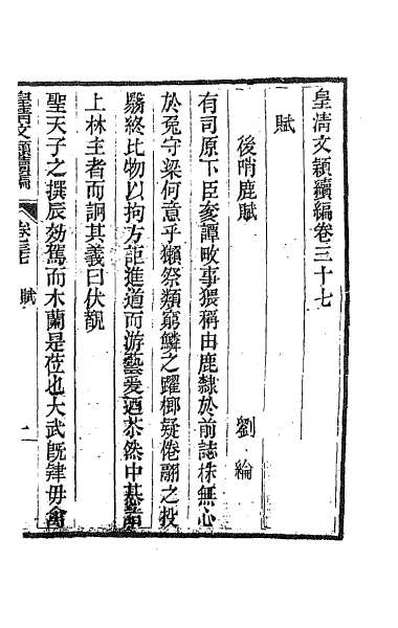 皇清文穎續編卷三十七
賦
後哨鹿賦　劉綸
有司原下臣奓譚畋事猥稱由鹿隸於前誌株無心
於兔守梁何意乎獺祭類窮鱗之躍槨疑倦翮之投
翳終比物以拘方詎進道而游藝爰迺苶然中惎
上林主者而詗其義曰伏覩
聖天子之撰辰効駕而木蘭是莅也大武旣肄毋禽
皇清文穎續編　卷三十七　賦　一